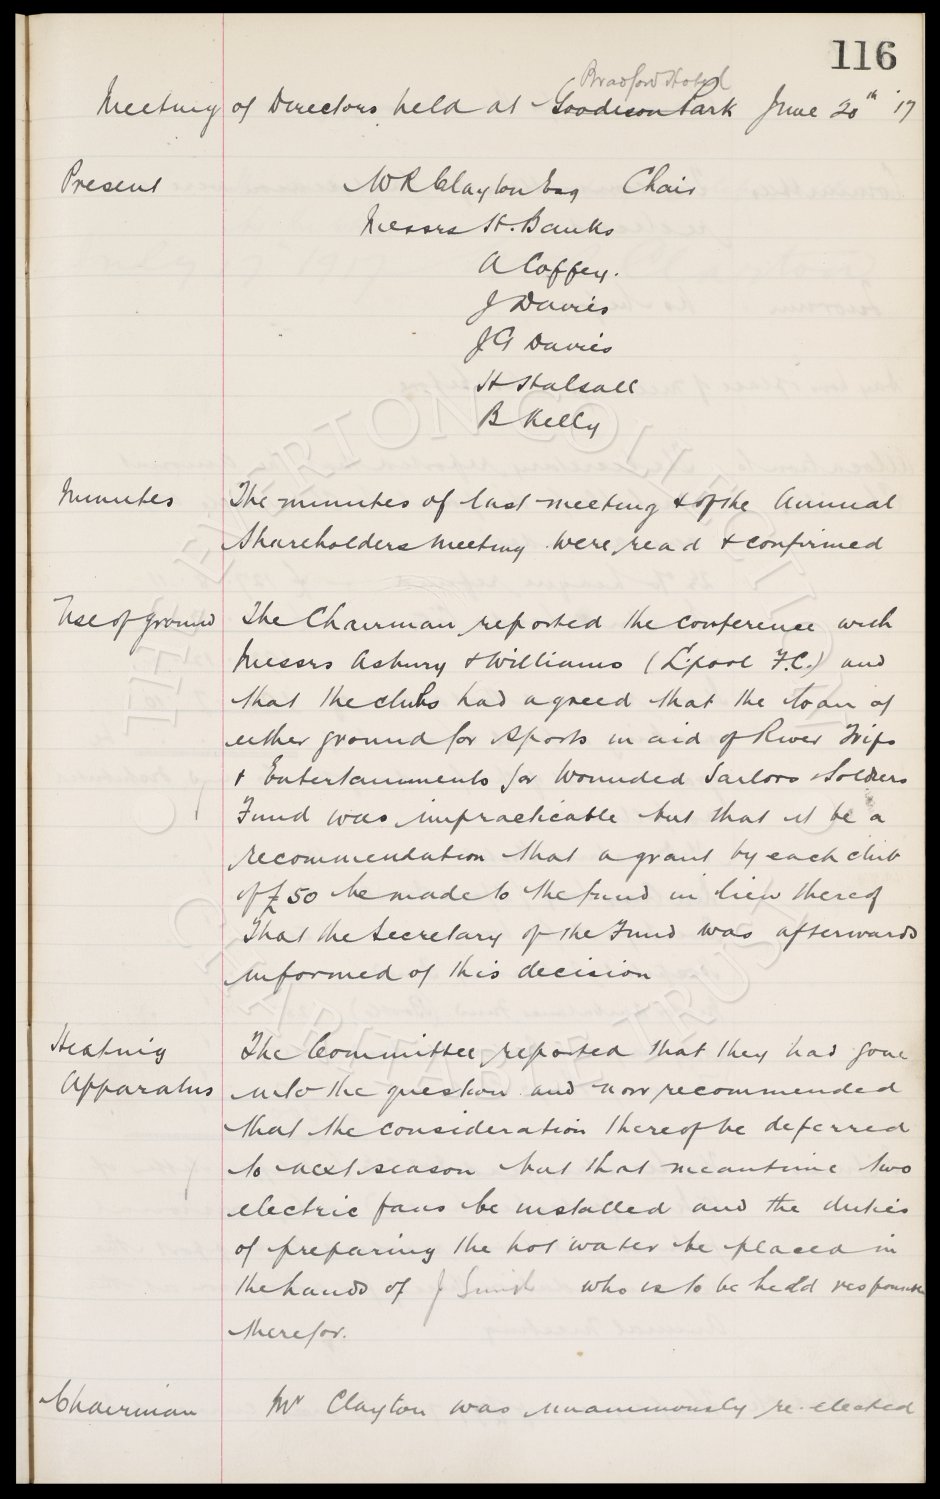 116
Bradford Hotel
Meeting of Directors held at Goodison Park June 20th '17
Present W R Clayton Esq Chair
Messrs H. Banks
A Coffey.
J Davies
J G Davies
H Halsall
B Kelly
Minutes The minutes of last meeting & of the Annual
Shareholders meeting were read & confirmed
Use of ground The Chairman reported the conference with
Messrs Asbury & Williams (L'pool F.C.) and
that the clubs had agreed that the loan of
either ground for Sports in aid of River Trips
& Entertainments for Wounded Sailors & Soldiers
Fund was impracticable but that it be a
recommendation that a grant by each club
of £50 be made to the fund in lieu thereof
That the Secretary of the Fund was afterwards
informed of this decision
Heating The Committee reported that they had gone
Apparatus into the question and now recommended
that the consideration thereof be deferred
to next season but that meantime two
electric fans be installed and the duties
of preparing the hot water be placed in
the hands of J Smith who is to be held responsible
therefor.
Chairman Mr Clayton was unanimously re-elected
THE EVERTON COLLECTION
CHARITABLE TRUST